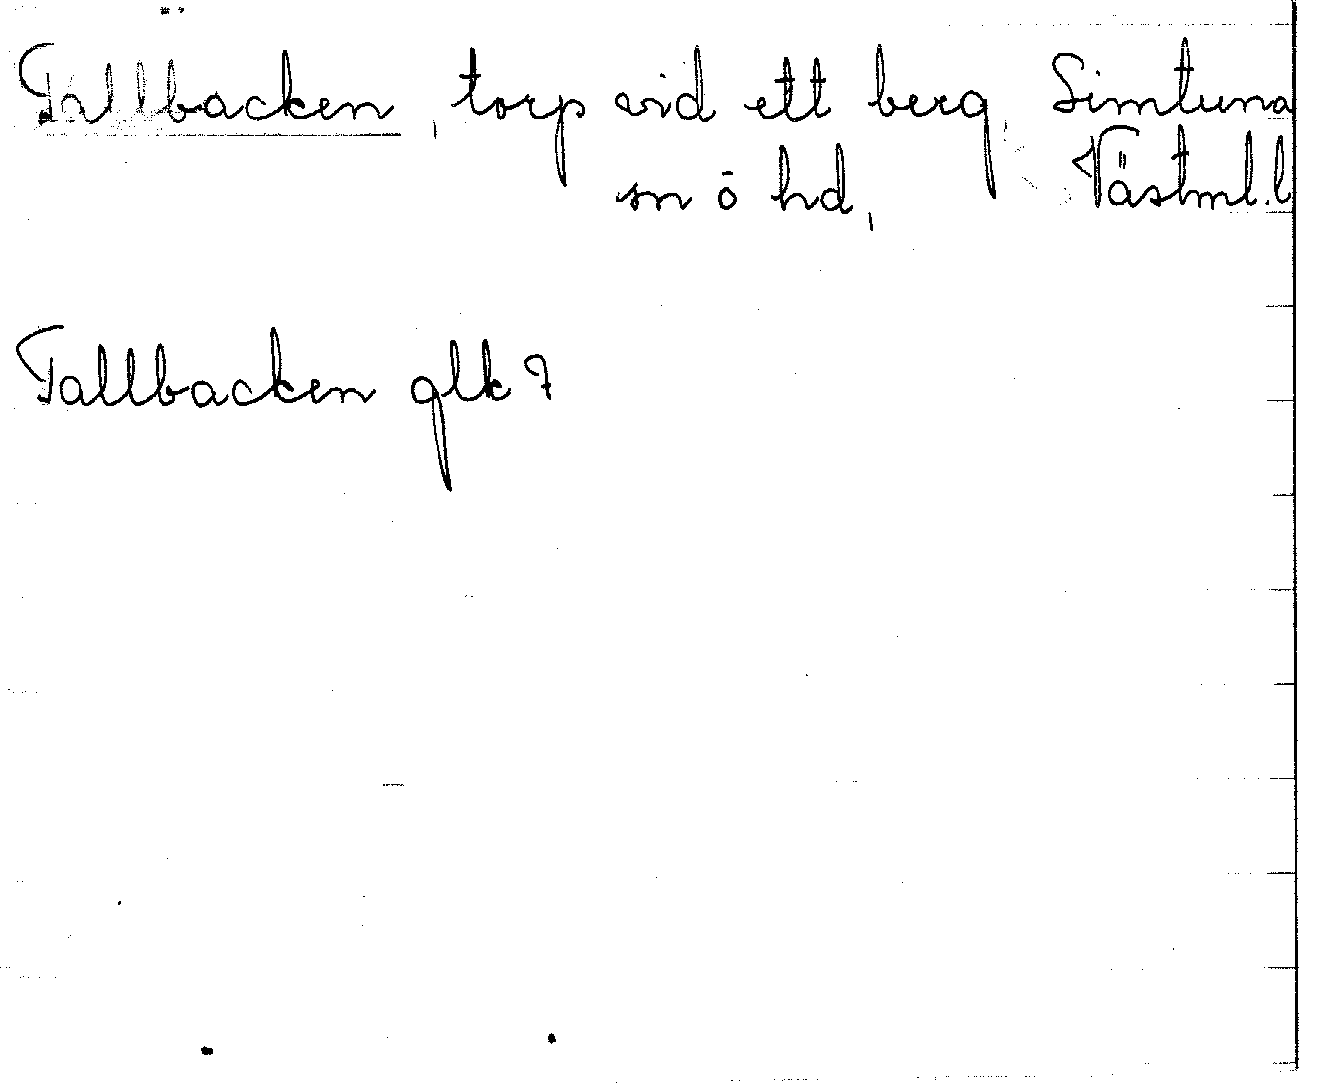 Tallbacken, torp vid ett berg, Simtuna
sn o hd, Västml. l
Tallbacken glk?